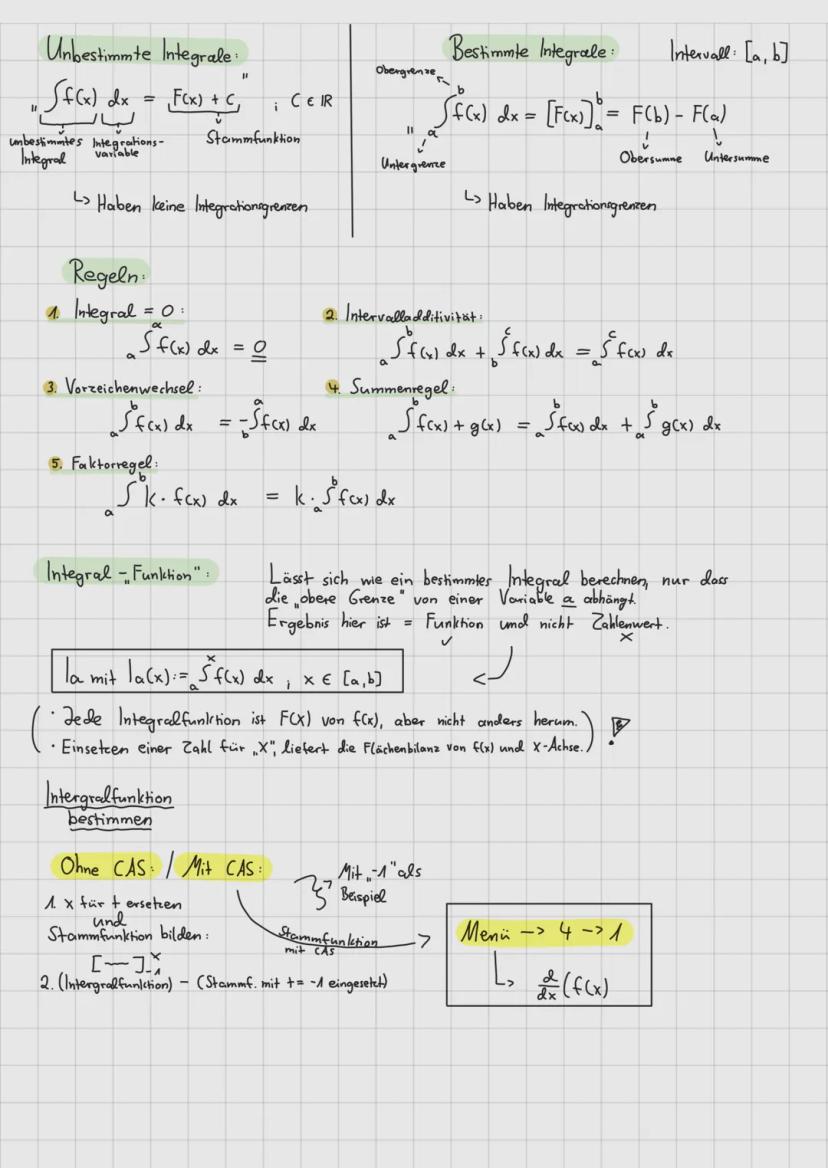 Unbestimmte Integrale:
"∫f(x) dx = F(x) + C" ; C ∈ ℝ
unbestimmtes Integral
Integrations-variable
Stammfunktion
↳ Haben keine Integrationsgrenzen
Bestimmte Integrale: Intervall: [a,b]
Obergrenze
"∫_a^b f(x) dx = [F(x)]_a^b = F(b) - F(a)
Untergrenze
Obersumme Untersumme
↳ Haben Integrationsgrenzen
Regeln:
1. Integral = 0:
∫_a^a f(x) dx = 0
2. Intervalladditivität:
∫_a^b f(x) dx + ∫_b^c f(x) dx = ∫_a^c f(x) dx
3. Vorzeichenwechsel:
∫_a^b f(x) dx = -∫_b^a f(x) dx
4. Summenregel:
∫_a^b f(x) + g(x) = ∫_a^b f(x) dx + ∫_a^b g(x) dx
5. Faktorregel:
∫_a^b k · f(x) dx = k · ∫_a^b f(x) dx
Integral-„Funktion":
Lässt sich wie ein bestimmtes Integral berechnen, nur dass
die „obere Grenze" von einer Variable a abhängt.
Ergebnis hier ist = Funktion und nicht Zahlenwert.
✓ x
Ia mit Ia(x):= ∫_a^x f(x) dx ; x ∈ [a,b]
· Jede Integralfunktion ist F(x) von f(x), aber nicht anders herum.
· Einsetzen einer Zahl für „X", liefert die Flächenbilanz von f(x) und X-Achse.
Intergralfunktion
bestimmen
Ohne CAS: / Mit CAS:
Mit „-1" als
Beispiel
1. x für t ersetzen
und
Stammfunktion bilden:
[—]_-1^x
2. (Intergralfunktion) - (Stammf. mit t = -1 eingesetzt)
Stammfunktion
mit CAS
Menü -> 4 -> 1
↳ d/dx (f(x)